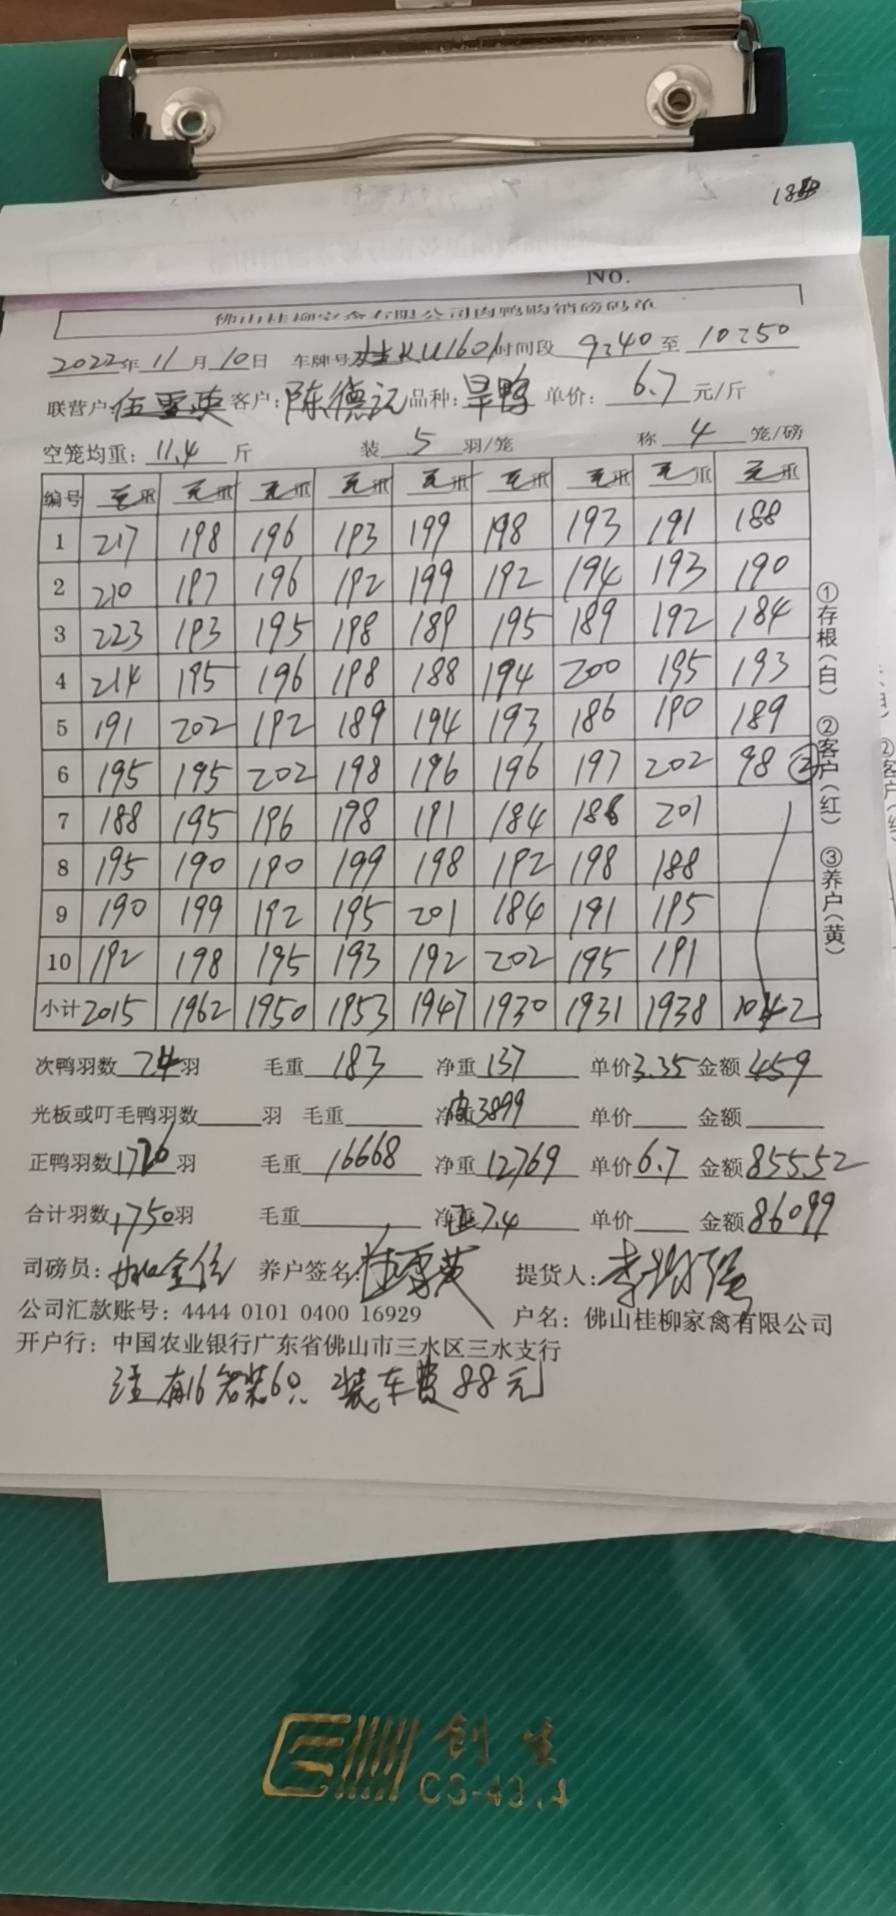 NO.
佛山桂柳家禽有限公司肉鸭购销磅码单
2022年11月10日 车牌号 桂KU1601 时间段 9:40 至 10:50
联营户:伍雪英 客户:陈德记 品种:旱鸭 单价:6.7元/斤
空笼均重:11.4斤 装5羽/笼 称4笼/磅
编号 毛重 毛重 毛重 毛重 毛重 毛重 毛重 毛重 毛重
1 217 198 196 193 199 198 193 191 188
2 210 197 196 192 199 192 194 193 190
3 223 193 195 198 189 195 189 192 184
4 214 195 196 198 188 194 200 195 193
5 191 202 192 189 194 193 186 190 189
6 195 195 202 198 196 196 197 202 98 ②
7 188 195 196 198 191 184 186 201
8 195 190 190 199 198 192 198 188
9 190 199 192 195 201 184 191 195
10 192 198 195 193 192 202 195 191
小计 2015 1962 1950 1953 1947 1930 1931 1938 1042
①存根(白) ②客户(红) ③养户(黄)
次鸭羽数24羽 毛重183 净重137 单价3.35 金额459
光板或叮毛鸭羽数 羽 毛重 皮3899 单价 金额
正鸭羽数1726羽 毛重16668 净重12769 单价6.7 金额85552
合计羽数1750羽 毛重 净重 7.4 单价 金额86099
司磅员: 养户签名:伍雪英 提货人:
公司汇款账号:4444 0101 0400 16929 户名:佛山桂柳家禽有限公司
开户行:中国农业银行广东省佛山市三水区三水支行
注有16笼装6只 装车费88元
创生
CS-43.4